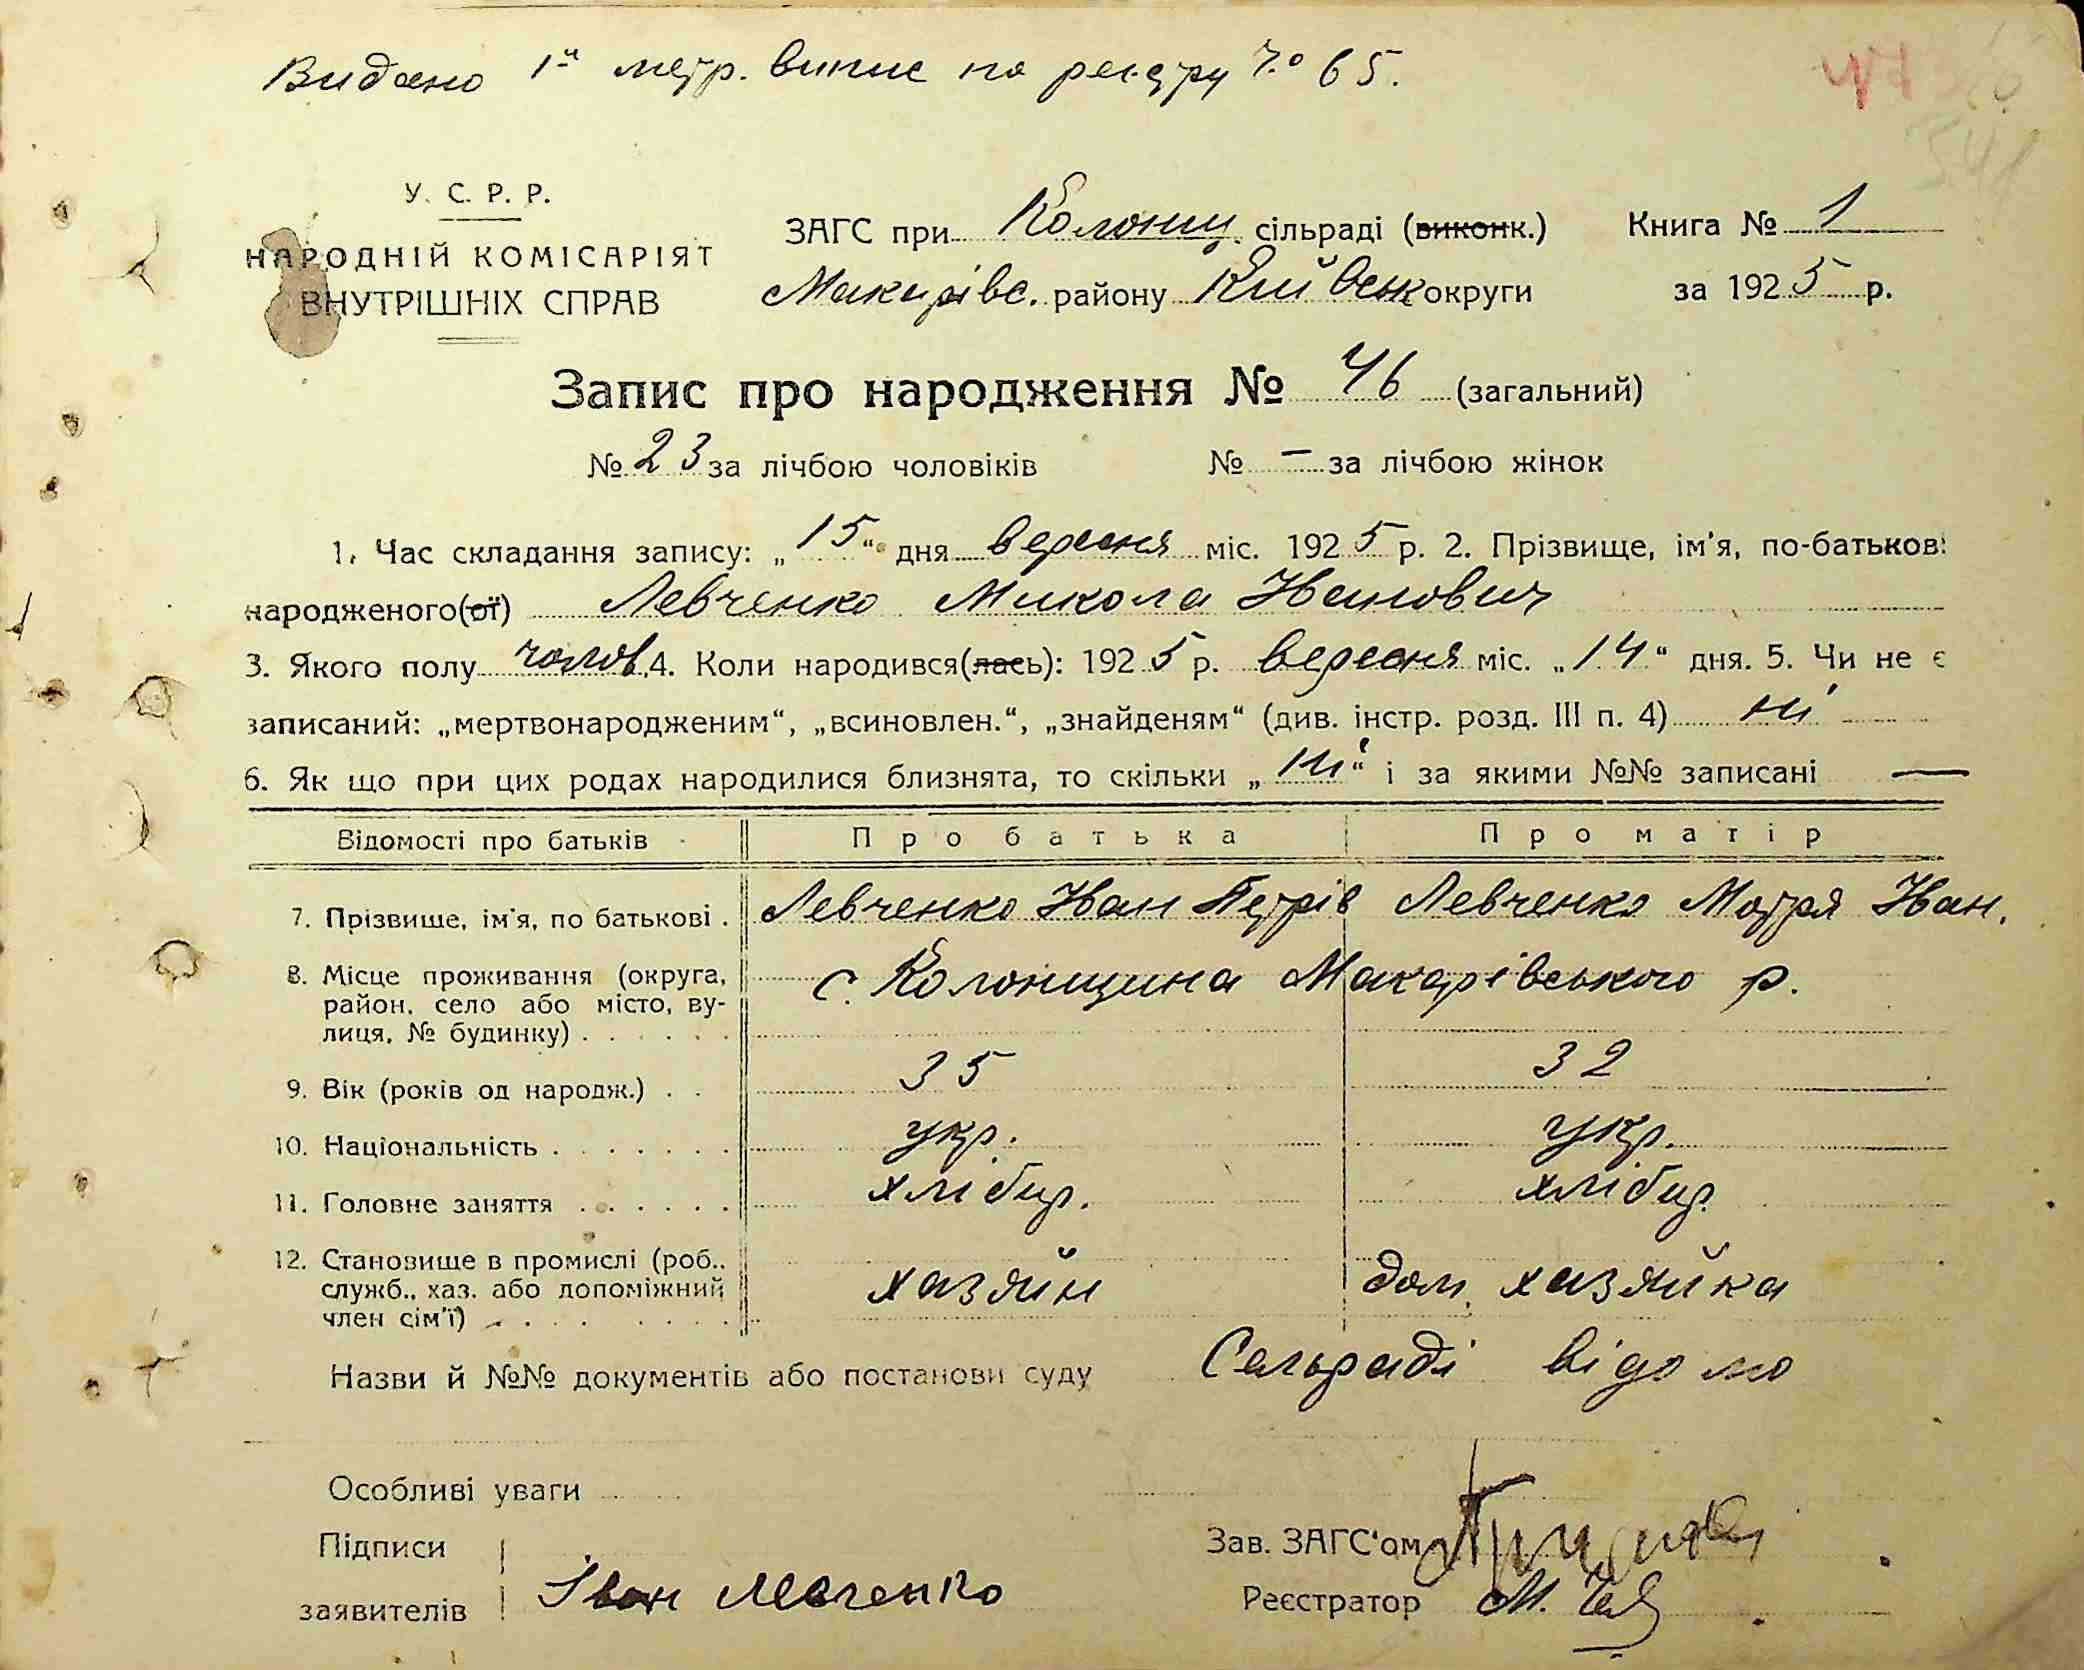 Видано 1й метр. випис по реєстру Ч.о 65.
541
У. С. Р. Р.
НАРОДНІЙ КОМІСАРІЯТ
ВНУТРІШНІХ СПРАВ
ЗАГС при Колонщ. сільраді (виконк.) Книга № 1
Макарівс. району Київськ округи за 1925 р.
Запис про народження № 46 (загальний)
№ 23 за лічбою чоловіків № — за лічбою жінок
1. Час складання запису: „15“ дня вересня міс. 1925 р. 2. Прізвище, ім'я, по-батькові
народженого(ої) Левченко Микола Іванович
3. Якого полу чолов. 4. Коли народився(лась): 1925 р. вересня міс. „14“ дня. 5. Чи не є
записаний: „мертвонародженим“, „всиновлен.“, „знайденям“ (див. інстр. розд. III п. 4) ні
6. Як що при цих родах народилися близнята, то скільки „ні“ і за якими №№ записані —
Відомості про батьків Про батька Про матір
7. Прізвище, ім'я, по батькові . Левченко Іван Петрів Левченко Мотря Іван.
8. Місце проживання (округа,
район, село або місто, ву-
лиця, № будинку) . . . . . . с. Колонщина Макарівського р.
9. Вік (років од народж.) . . 35 32
10. Національність . . . . . . . укр. укр.
11. Головне заняття . . . . . . хлібор. хлібор.
12. Становище в промислі (роб.,
служб., хаз. або допоміжний
член сім'ї) . . . . . . . . хазяїн дом. хазяйка
Назви й №№ документів або постанови суду Сельраді відомо
Особливі уваги
Підписи
заявителів Іван Левченко
Зав. ЗАГС'ом
Реєстратор М.